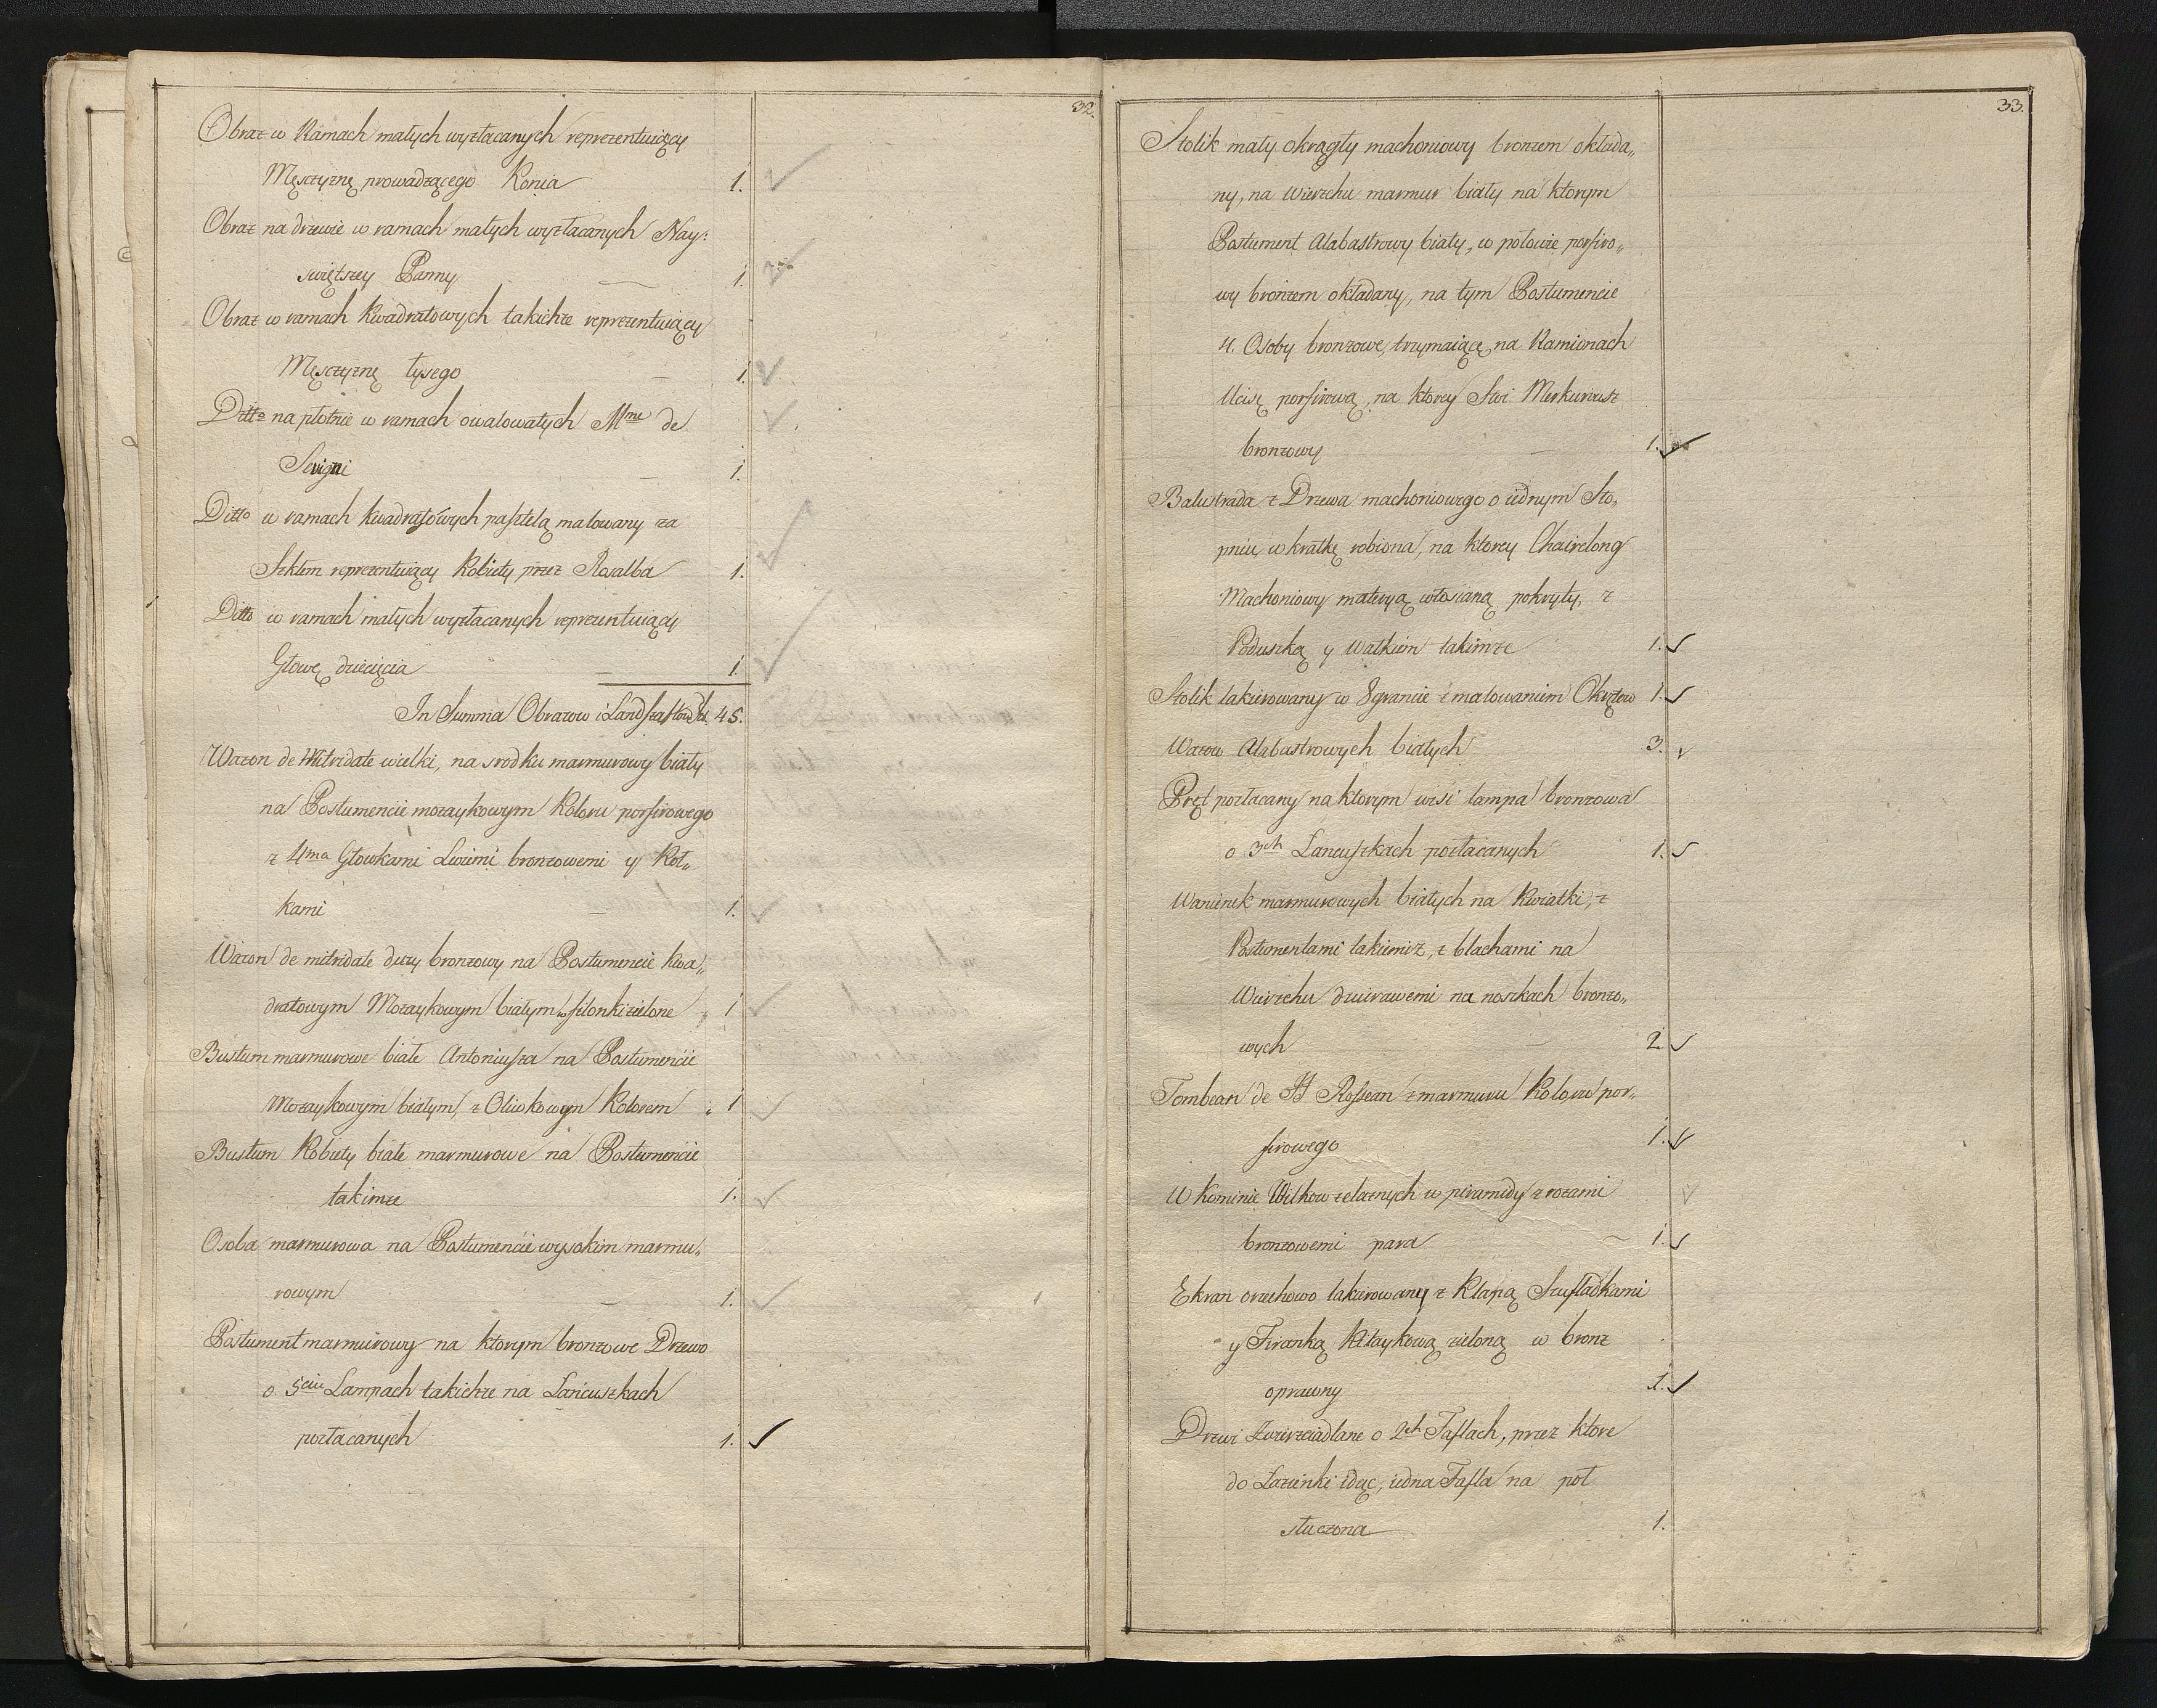 32.
Obraz w Ramach małych wyzłacanych reprezentuiący
Męsczyznę prowadzącego Konia 1.
Obraz na drzewie w ramach małych wyzłacanych Nay:
swiętszey Panny 1.
Obraz w ramach Kwadratowych takichże reprezentuiący
Męsczyznę łysego 1.
Ditto na płotnie w ramach owalowatych Mme de
Sevigni 1.
Ditto w ramach kwadratowych pasztelą malowany za
Szkłem reprezentuiący Kobiety przez Rosalba 1.
Ditto w ramach małych wyzłacanych reprezentuiący
Głowę dziecięcia 1.
In Summa Obrazow i Landszaftow 45.
Wazon de Mitridate wielki, na srodku marmurowy biały
na Postumencie mozaykowym Koloru porfirowego
z 4ma Głowkami Lwiemi bronzowemi y Koł„
kami 1.
Wazon de mitridate duży bronzowy na Postumencie kwa„
dratowym Mozaykowym białym w filonki zielone 1
Bustum marmurowe białe Antoniusza na Postumencie
Mozaykowym białym, z Oliwkowym Kolorem 1
Bustum Kobiety białe marmurowe na Postumencie
takimze 1.
Osoba marmurowa na Postumencie wysokim marmu„
rowym 1.
Postument marmurowy na ktorym bronzowe Drzewo
o 5ciu Lampach takichze na Łańcuszkach
pozłacanych 1.
33.
Stolik mały okrągły machoniowy bronzem okłada„
ny, na Wierzchu marmur biały na ktorym
Postument Alabastrowy biały, w połowie porfiro„
wy bronzem okładany, na tym Postumencie
4. Osoby bronzowe, trzymaiące na Ramionach
Micę porfirową, na ktorey stoi Merkuriusz
bronzowy 1.
Balustrada z Drzewa machoniowego o iednym Sto„
pniu w kratkę robiona, na ktorey Chairelong
Machoniowy materyą włosianą pokryty, z
Poduszką y Wałkiem takimze 1.
Stolik lakierowany w 8grancie z malowaniem Okrętow 1.
Wazow Alabastrowych białych 3.
Pręt pozłacany na ktorym wisi lampa bronzowa
o 3ch Łancuszkach pozłacanych 1.
Wanienek marmurowych białych na Kwiatki, z
Postumentami takiemiz, z blachami na
Wierzchu dziurawemi na noszkach bronzo„
wych 2
Tombeau de JJ Rossean z marmuru Koloru por„
firowego 1.
W Kominie Wilkow zelaznych w piramidy z rozami
bronzowemi para 1.
Ekran orzechowo lakierowany z Klapą Szufladkami
y Firanką Kitaykową zieloną w bronz
oprawny 1.
Drzwi Zwierciadlane o 2ch Taflach, przez ktore
do Łazienki idąc, iedna Tafla na poł
stuczona 1.